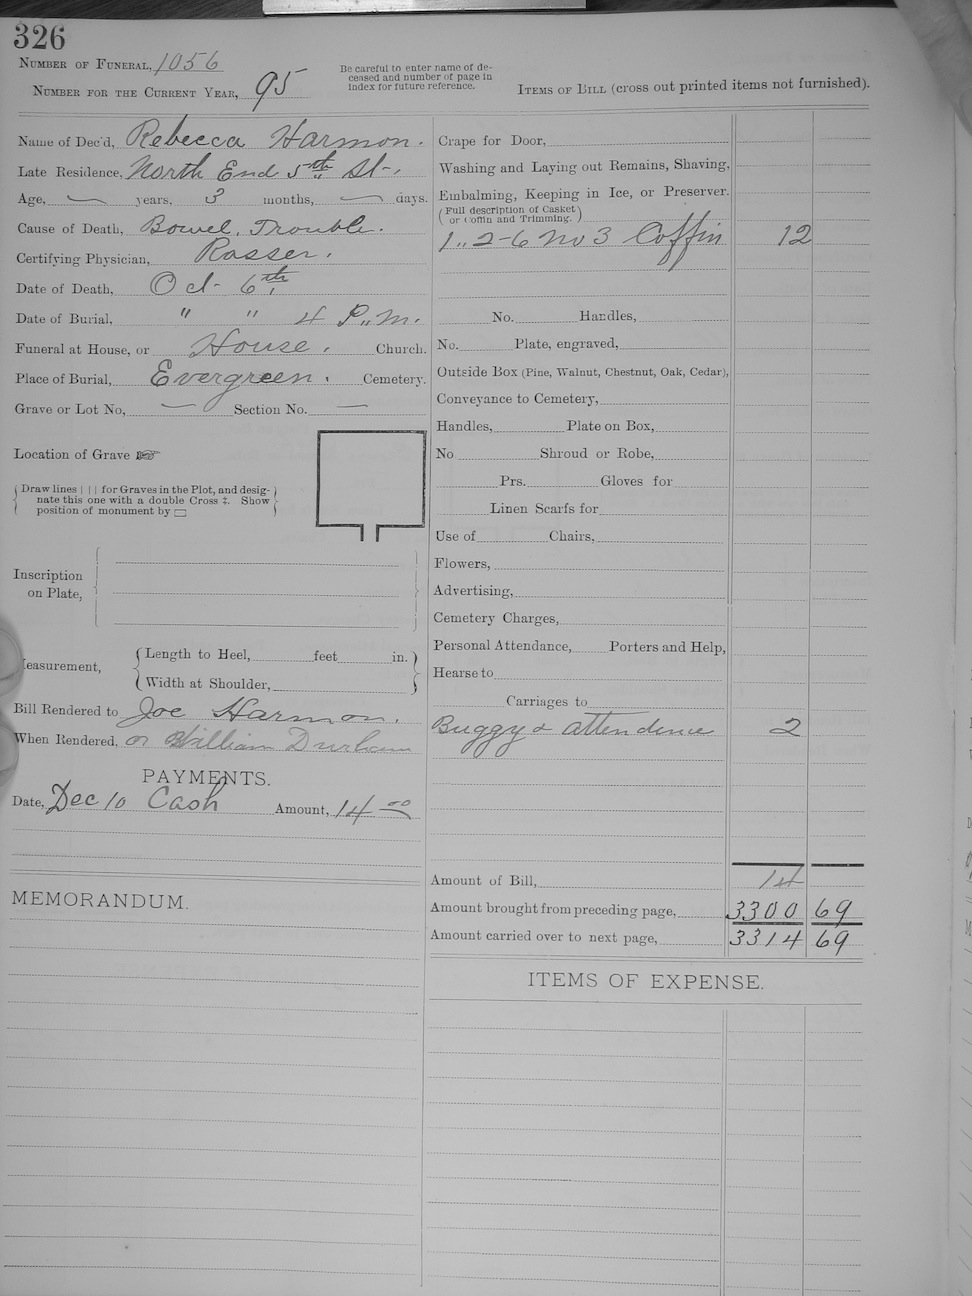 326
Number of Funeral, 1056
Number for the Current Year, 95
Be careful to enter name of de-
ceased and number of page in
index for future reference.
Items of Bill (cross out printed items not furnished).
Name of Dec'd, Rebecca Harmon.
Late Residence, North End 5th St.
Age, — years, 3 months, — days.
Cause of Death, Bowel, Trouble.
Certifying Physician, Rosser.
Date of Death, Oct 6th
Date of Burial, " " 4 P.M.
Funeral at House, or House. Church.
Place of Burial, Evergreen. Cemetery.
Grave or Lot No, — Section No. —
Location of Grave ☞
(Draw lines | | | for Graves in the Plot, and desig-
nate this one with a double Cross ‡. Show
position of monument by ▭)
Inscription
on Plate,
Measurement,
Length to Heel, feet in.
Width at Shoulder,
Bill Rendered to Joe Harmon.
When Rendered, or William Durham
PAYMENTS.
Date, Dec 10 Cash Amount, 14 00
MEMORANDUM.
Crape for Door,
Washing and Laying out Remains, Shaving,
Embalming, Keeping in Ice, or Preserver.
(Full description of Casket
or Coffin and Trimming.)
1.. 2-6 No 3 Coffin 12
No. Handles,
No. Plate, engraved,
Outside Box (Pine, Walnut, Chestnut, Oak, Cedar),
Conveyance to Cemetery,
Handles, Plate on Box,
No Shroud or Robe,
Prs. Gloves for
Linen Scarfs for
Use of Chairs,
Flowers,
Advertising,
Cemetery Charges,
Personal Attendance, Porters and Help,
Hearse to
Carriages to
Buggy & attendence 2
Amount of Bill, 14
Amount brought from preceding page, 3300 69
Amount carried over to next page, 3314 69
ITEMS OF EXPENSE.